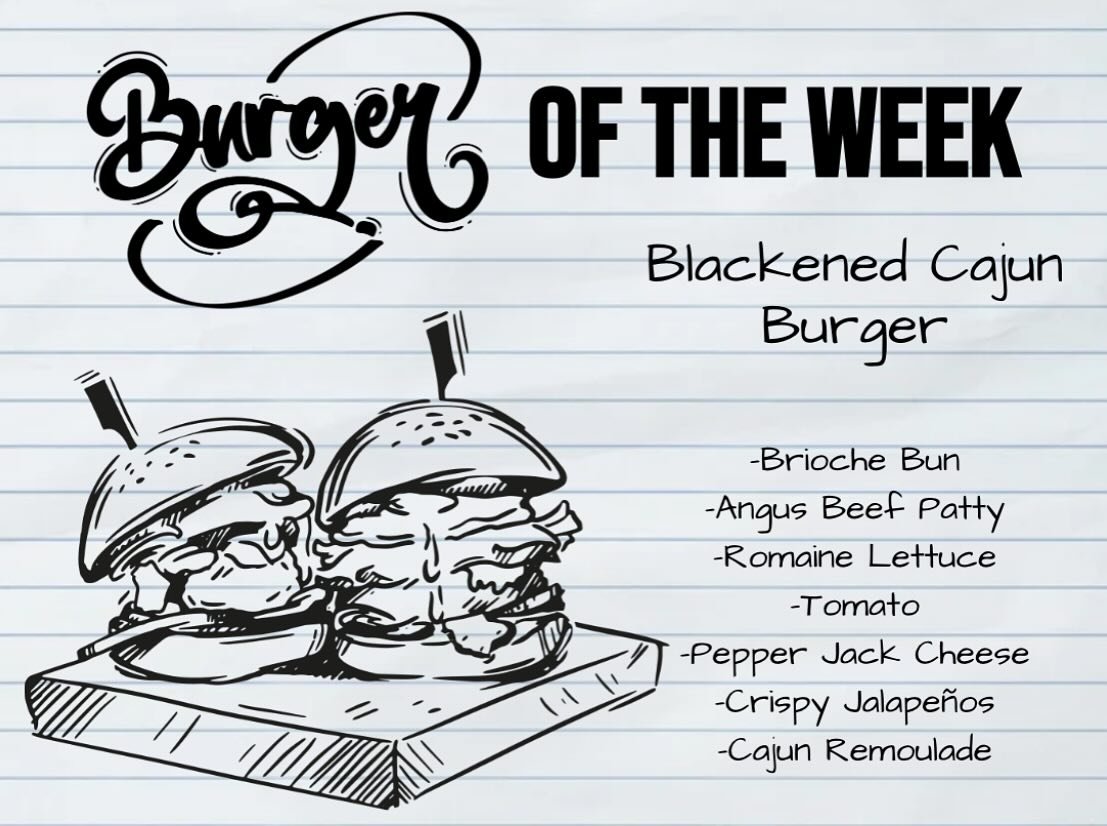 Burger OF THE WEEK
Blackened Cajun
Burger
-Brioche Bun
-Angus Beef Patty
-Romaine Lettuce
-Tomato
-Pepper Jack Cheese
-Crispy Jalapeños
-Cajun Remoulade